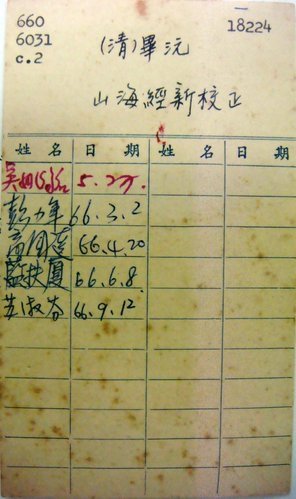 660
6031
c.2
18224
(清)畢沅
山海經新校正
姓 名 日 期 姓 名 日 期
吳 5.27.
彭力年 66.3.2
66.4.20
藍扶厦 66.6.8.
淑芬 66.9.12